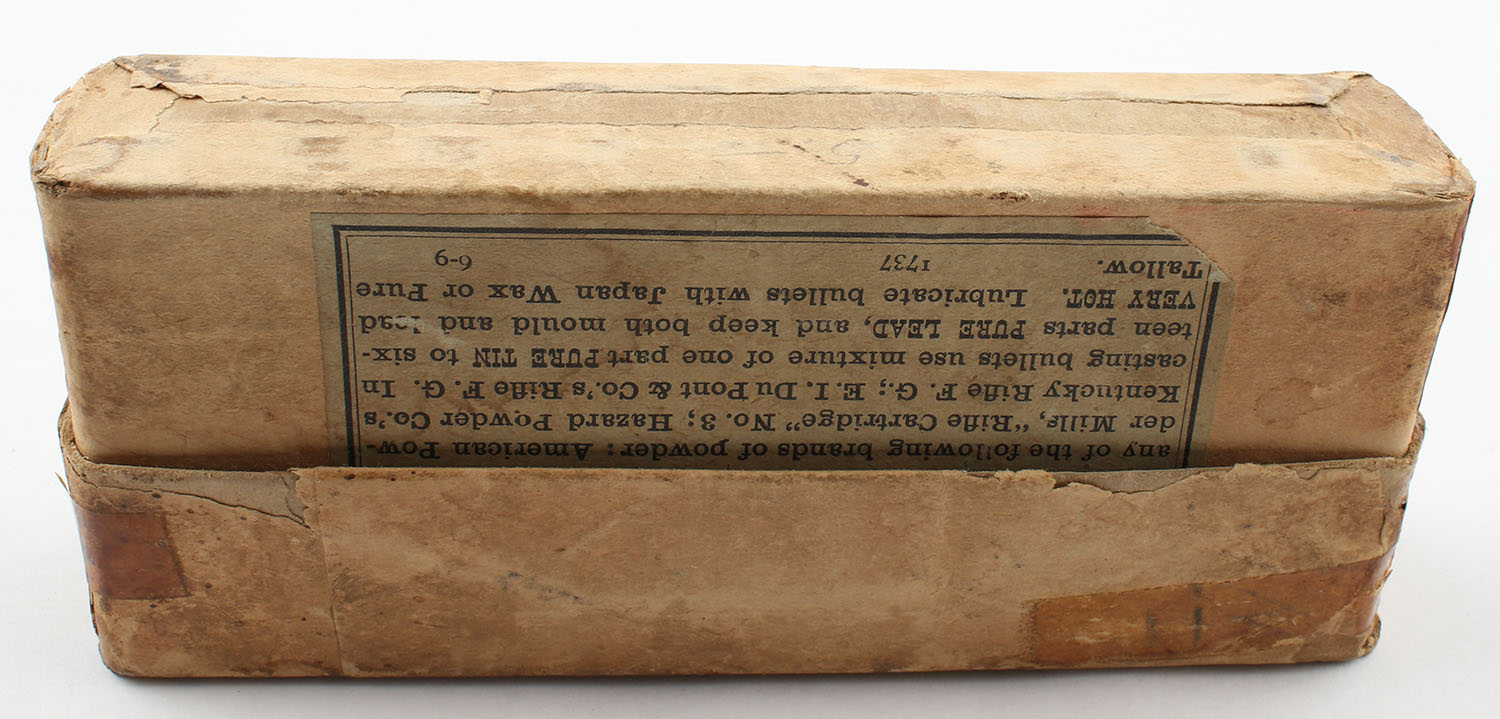 any of the following brands of powder: American Pow-
der Mills, "Rifle Cartridge" No. 3; Hazard Powder Co.'s
Kentucky Rifle F. G.; E. I. Du Pont & Co.'s Rifle F. G. In
casting bullets use mixture of one part PURE TIN to six-
teen parts PURE LEAD, and keep both mould and lead
VERY HOT. Lubricate bullets with Japan Wax or Pure
Tallow. 1737 6-9